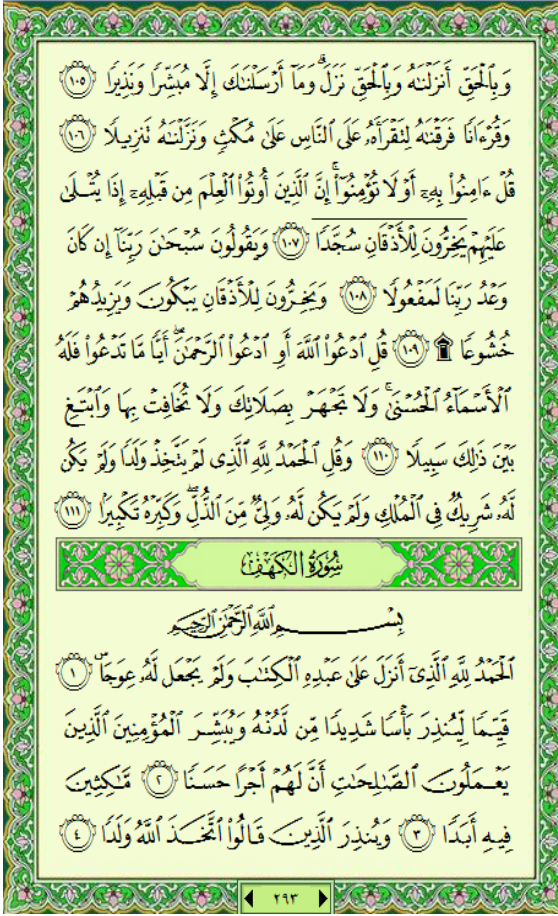 وَبِالْحَقِّ أَنزَلْنَٰهُ وَبِالْحَقِّ نَزَلَ ۗ وَمَآ أَرْسَلْنَٰكَ إِلَّا مُبَشِّرًا وَنَذِيرًا ١٠٥
وَقُرْءَانًا فَرَقْنَٰهُ لِتَقْرَأَهُۥ عَلَى النَّاسِ عَلَىٰ مُكْثٍ وَنَزَّلْنَٰهُ تَنزِيلًا ١٠٦
قُلْ ءَامِنُوا۟ بِهِۦٓ أَوْ لَا تُؤْمِنُوٓا۟ ۚ إِنَّ الَّذِينَ أُوتُوا۟ الْعِلْمَ مِن قَبْلِهِۦٓ إِذَا يُتْلَىٰ
عَلَيْهِمْ يَخِرُّونَ لِلْأَذْقَانِ سُجَّدًا ١٠٧ وَيَقُولُونَ سُبْحَٰنَ رَبِّنَآ إِن كَانَ
وَعْدُ رَبِّنَا لَمَفْعُولًا ١٠٨ وَيَخِرُّونَ لِلْأَذْقَانِ يَبْكُونَ وَيَزِيدُهُمْ
خُشُوعًا ۩ ١٠٩ قُلِ ادْعُوا۟ اللَّهَ أَوِ ادْعُوا۟ الرَّحْمَٰنَ ۖ أَيًّا مَّا تَدْعُوا۟ فَلَهُ
الْأَسْمَآءُ الْحُسْنَىٰ ۚ وَلَا تَجْهَرْ بِصَلَاتِكَ وَلَا تُخَافِتْ بِهَا وَابْتَغِ
بَيْنَ ذَٰلِكَ سَبِيلًا ١١٠ وَقُلِ الْحَمْدُ لِلَّهِ الَّذِى لَمْ يَتَّخِذْ وَلَدًا وَلَمْ يَكُن
لَّهُۥ شَرِيكٌ فِى الْمُلْكِ وَلَمْ يَكُن لَّهُۥ وَلِىٌّ مِّنَ الذُّلِّ ۖ وَكَبِّرْهُ تَكْبِيرًۢا ١١١
سُورَةُ الكَهْفِ
بِسْمِ اللَّهِ الرَّحْمَٰنِ الرَّحِيمِ
الْحَمْدُ لِلَّهِ الَّذِىٓ أَنزَلَ عَلَىٰ عَبْدِهِ الْكِتَٰبَ وَلَمْ يَجْعَل لَّهُۥ عِوَجَا ۜ ١
قَيِّمًا لِّيُنذِرَ بَأْسًا شَدِيدًا مِّن لَّدُنْهُ وَيُبَشِّرَ الْمُؤْمِنِينَ الَّذِينَ
يَعْمَلُونَ الصَّٰلِحَٰتِ أَنَّ لَهُمْ أَجْرًا حَسَنًا ٢ مَّٰكِثِينَ
فِيهِ أَبَدًا ٣ وَيُنذِرَ الَّذِينَ قَالُوا۟ اتَّخَذَ اللَّهُ وَلَدًا ٤
٢٩٣